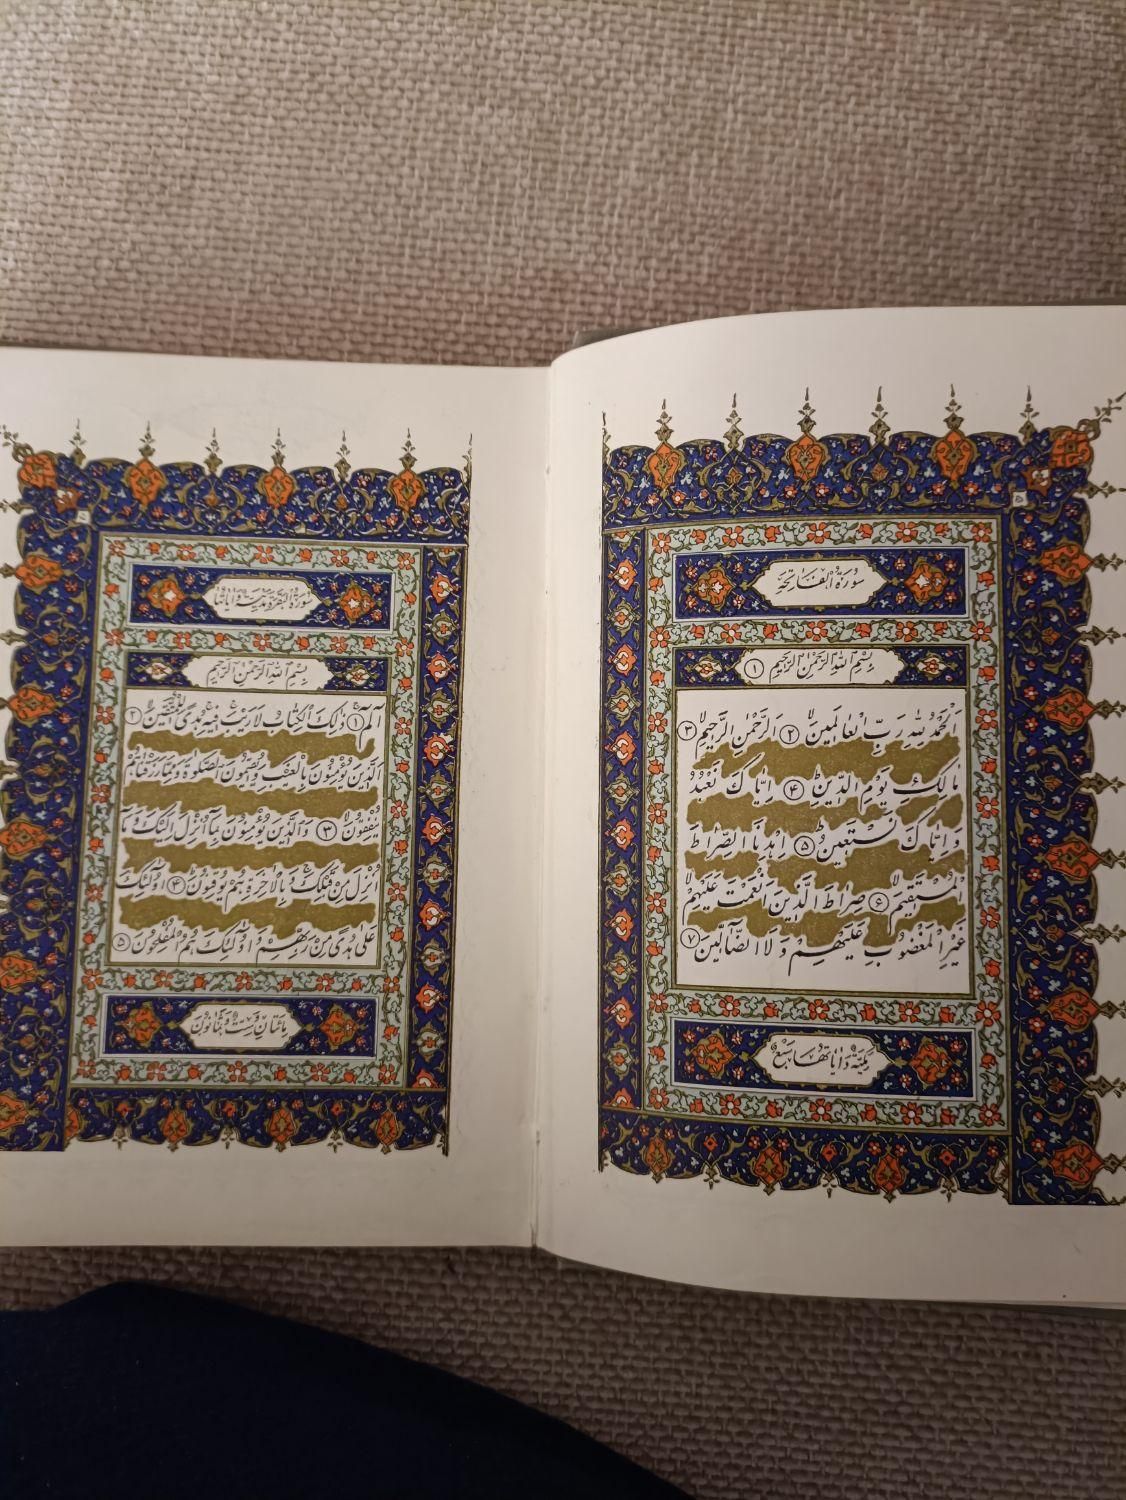 سُورَةُ الْفَاتِحَةِ
بِسْمِ اللّٰهِ الرَّحْمٰنِ الرَّحِيمِ ١
اَلْحَمْدُ لِلّٰهِ رَبِّ الْعَالَمِينَ ٢ اَلرَّحْمٰنِ الرَّحِيمِ ٣
مَالِكِ يَوْمِ الدِّينِ ۴ اِيَّاكَ نَعْبُدُ
وَ اِيَّاكَ نَسْتَعِينُ ۵ اِهْدِنَا الصِّرَاطَ
الْمُسْتَقِيمَ ۶ صِرَاطَ الَّذِينَ اَنْعَمْتَ عَلَيْهِمْ
غَيْرِ الْمَغْضُوبِ عَلَيْهِمْ وَ لَا الضَّالِّينَ ٧
مَكِّيَّة وَ اٰيَاتُهَا سَبْع
سُورَةُ الْبَقَرَةِ مَدَنِيَّة اٰيَاتُهَا
بِسْمِ اللّٰهِ الرَّحْمٰنِ الرَّحِيمِ
الٓمٓ ١ ذٰلِكَ الْكِتَابُ لَا رَيْبَ فِيهِ هُدًى لِلْمُتَّقِينَ ٢
اَلَّذِينَ يُؤْمِنُونَ بِالْغَيْبِ وَ يُقِيمُونَ الصَّلٰوةَ وَ مِمَّا رَزَقْنَاهُمْ
يُنْفِقُونَ ٣ وَ الَّذِينَ يُؤْمِنُونَ بِمَا اُنْزِلَ اِلَيْكَ وَ مَا
اُنْزِلَ مِنْ قَبْلِكَ وَ بِالْاٰخِرَةِ هُمْ يُوقِنُونَ ۴ اُولٰئِكَ
عَلٰى هُدًى مِنْ رَبِّهِمْ وَ اُولٰئِكَ هُمُ الْمُفْلِحُونَ ۵
مِائَتَانِ وَ سِتٌّ وَ ثَمَانُونَ